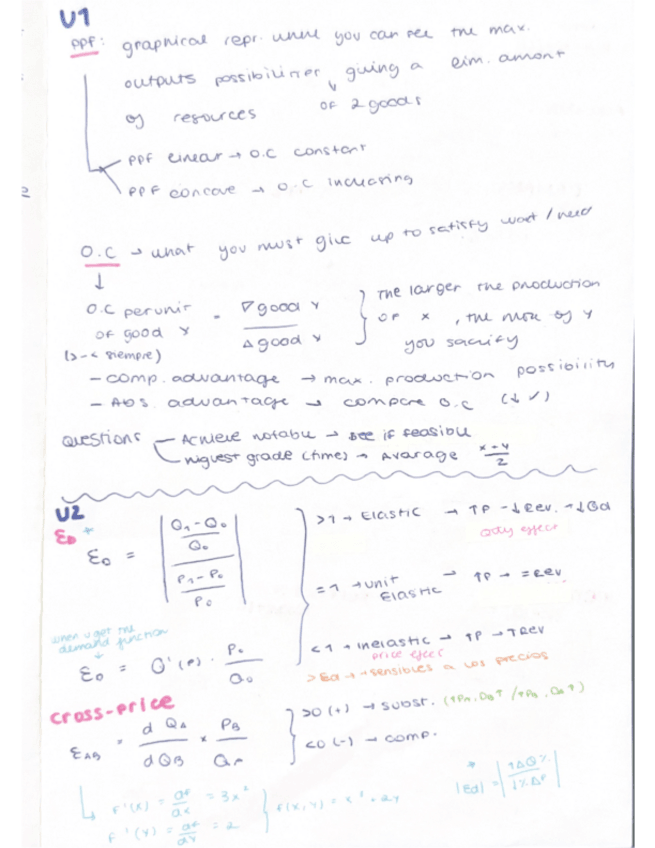 U1
PPF: graphical repr. where you can see the max.
outputs possibilities, giving a lim. amont
of 2 goods
of resources
PPF linear → O.C constant
PPF concave → O.C increasing
O.C → what you must give up to satisfy want / need
↓
O.C per unit of good X = ∇ good Y / Δ good X
(>-< siempre)
The larger the production
of x, the more of y
you sacrify
- comp. advantage → max. production possibility
- Abs. advantage → compare O.C (↓ ✓)
Questions — Achieve notable → see if feasible
highest grade (time) → Avarage x+y / 2
U2
ED *
ED = | (Q1 - Q0 / Q0) / (P1 - P0 / P0) |
>1 → Elastic → ↑P → ↓Rev. → ↓Qd
Qdy effect
=1 → unit Elastic → ↑P → =Rev
<1 → inelastic → ↑P → ↑Rev
price effect
>Ed → + sensibles a los precios
when u got the
demand function
↓
ED = Q'(P) · P0 / Q0
cross-price
EAB = d QA / d QB × PB / QA
>0 (+) → subst. (↑PA, QB↑ / ↑PB, QA↑)
<0 (-) → comp.
* |Ed| = | ↑ΔQ% / ↓%ΔP |
F'(x) = dF / dx = 3x²
F'(Y) = dF / dY = 2
f(x,y) = x³ + 2y